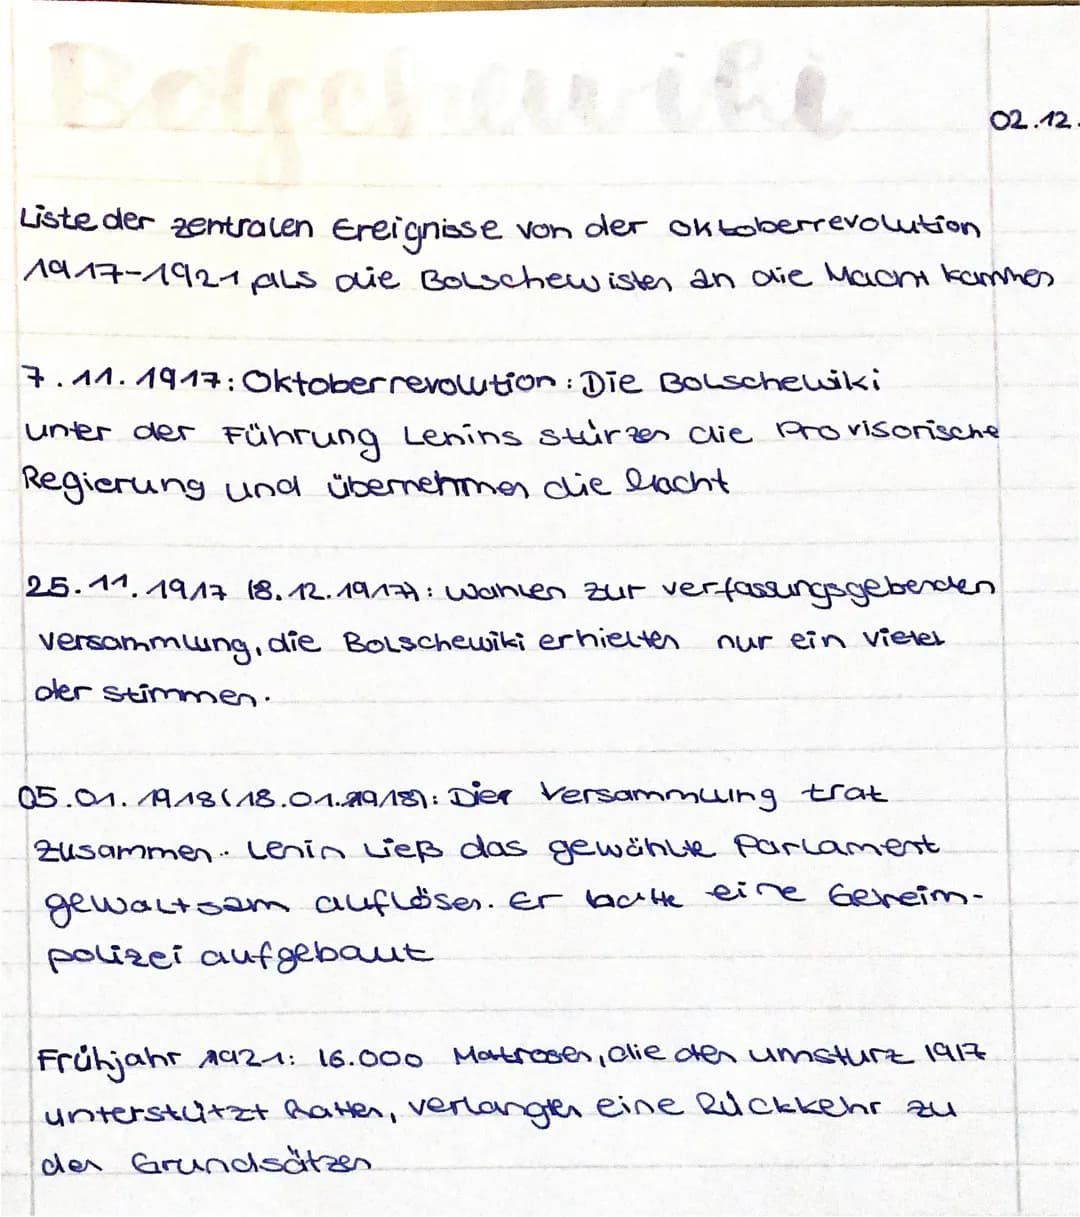 Bolschewiki
02.12.
Liste der zentralen Ereignisse von der Oktoberrevolution
1917-1921 als die Bolschewisten an die Macht kammen
7.11.1917: Oktoberrevolution: Die Bolschewiki
unter der Führung Lenins stürzen die Provisorische
Regierung und übernehmen die Macht
25.11.1917 (8.12.1917): Wahlen zur verfassungsgebenden
versammlung, die Bolschewiki erhielten nur ein viertel
der Stimmen.
05.01.1918 (18.01.1918): Die Versammlung trat
zusammen. Lenin ließ das gewählte Parlament
gewaltsam auflösen. Er hatte eine Geheim-
polizei aufgebaut
Frühjahr 1921: 16.000 Matrosen, die den umsturz 1917
unterstützt hatten, verlangten eine Rückkehr zu
den Grundsätzen